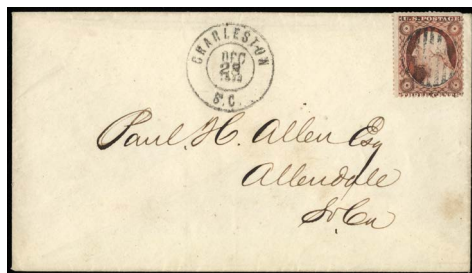 CHARLESTON
DEC
S.C.
U.S. POSTAGE
THREE CENTS
Paul. H. Allen Esq
Allendale
So Ca